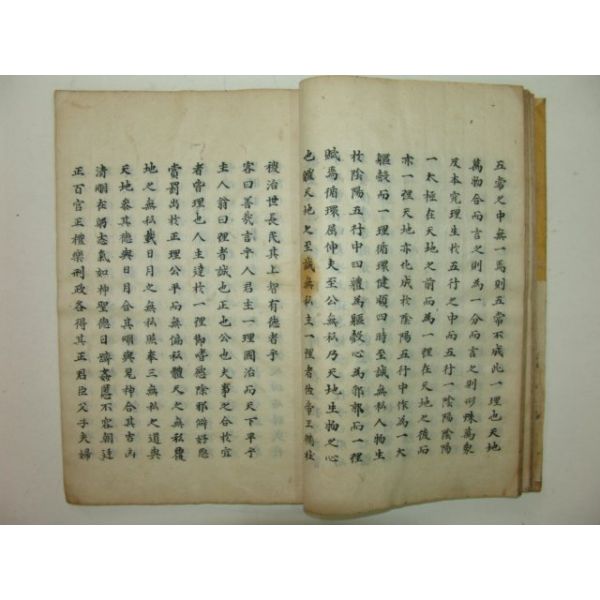 五常之中無一焉則五常不成此一理也天地
萬物合而言之則為一分而言之則形殊萬象
反本究理生於五行之中而五行一陰陽陰陽
一太極在天地之前而為一理在天地之後而
亦一理天地亦化成於陰陽五行中作為一大
軀殼而一理循環健順四時至誠無私人物生
於陰陽五行中四體為軀殼心為郛郭而一理
賦焉循環屈伸夫至公無私乃天地生物之心
也體天地之至誠無私主一理者惟帝王獨
被治世長民其上智有德者乎
客曰善哉言乎人君主一理國治而天下平乎
主人翁曰理者誠也正也公也大事之合於宜
者皆理也人主達於一理御嗜慾除邪僻好惡
賞罰出於正理公平而無偏私體天之無私覆
地之無私載日月之無私照參三無私之道與
天地參其德與日月合其明與鬼神合其吉凶
清明在躬志氣如神聖德日躋姦慝不容朝廷
正百官正禮樂刑政各得其正君臣父子夫婦